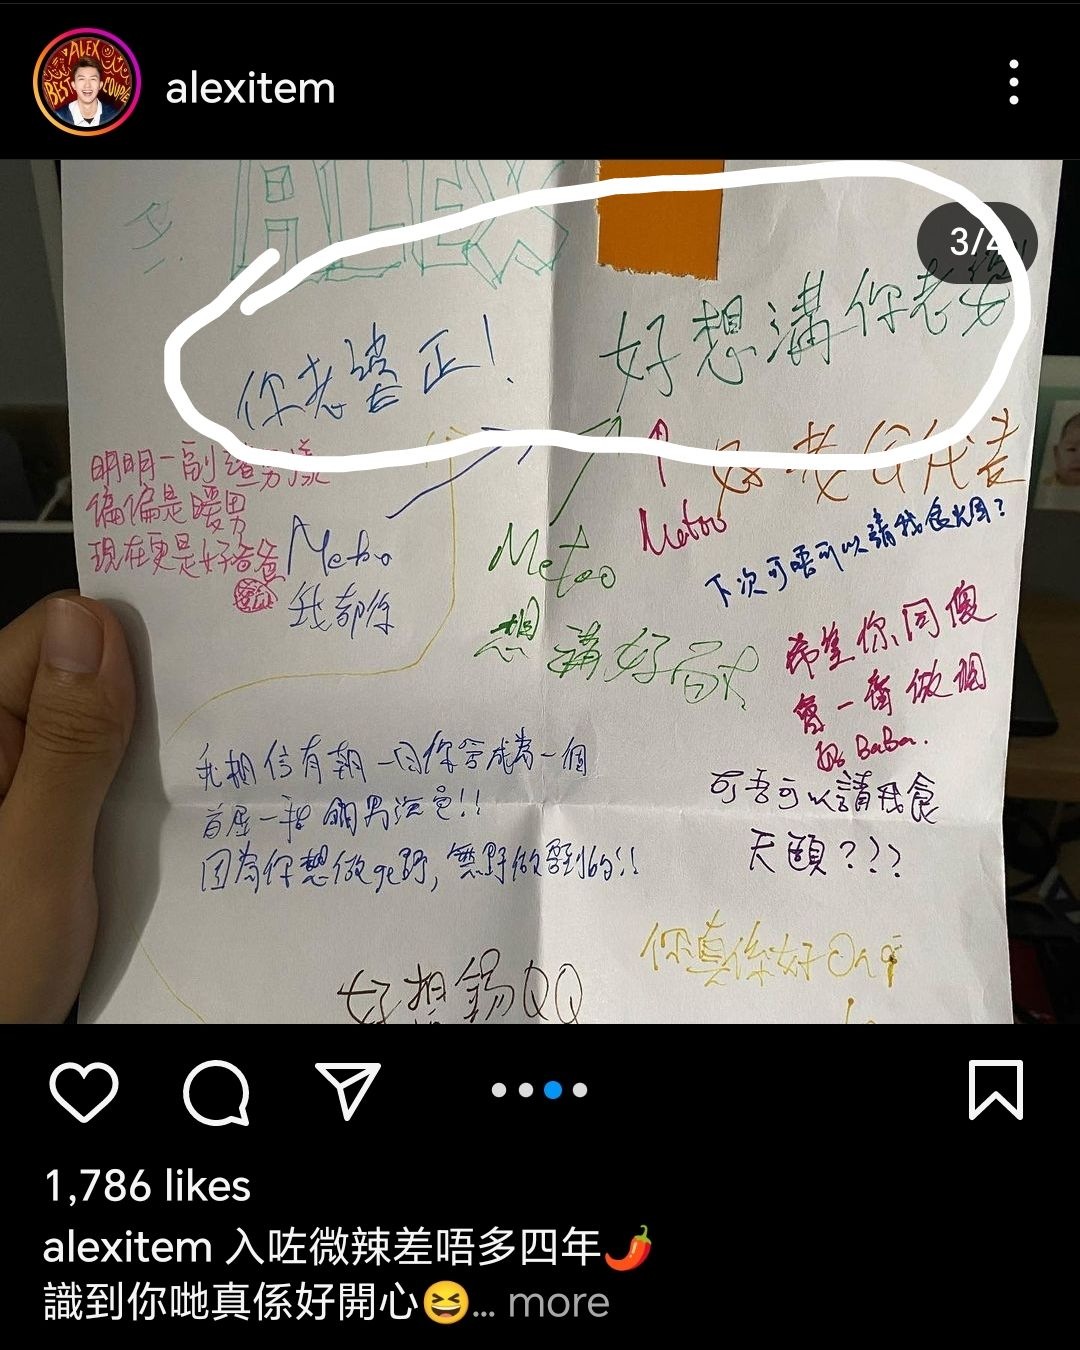 ALEX
BEST COUPLE
alexitem
ALEX
3/4
你老婆正！
好想溝你老婆
明明一副渣男樣
偏偏是暖男
現在更是好爸爸
Metoo
我都係
Metoo
Metoo
好老公代表
下次可唔可以請我食燭？
想溝好耐
希望你同傻
會一齊做個
好BaBa.
我相信有朝一日你會成為一個
首屈一指 男演員!!
因為你想做ge野，無野做唔到的!!
可吾可以請我食
天頤???
你真係好Ong
好想錫QQ
1,786 likes
alexitem 入咗微辣差唔多四年🌶️
識到你哋真係好開心😆... more